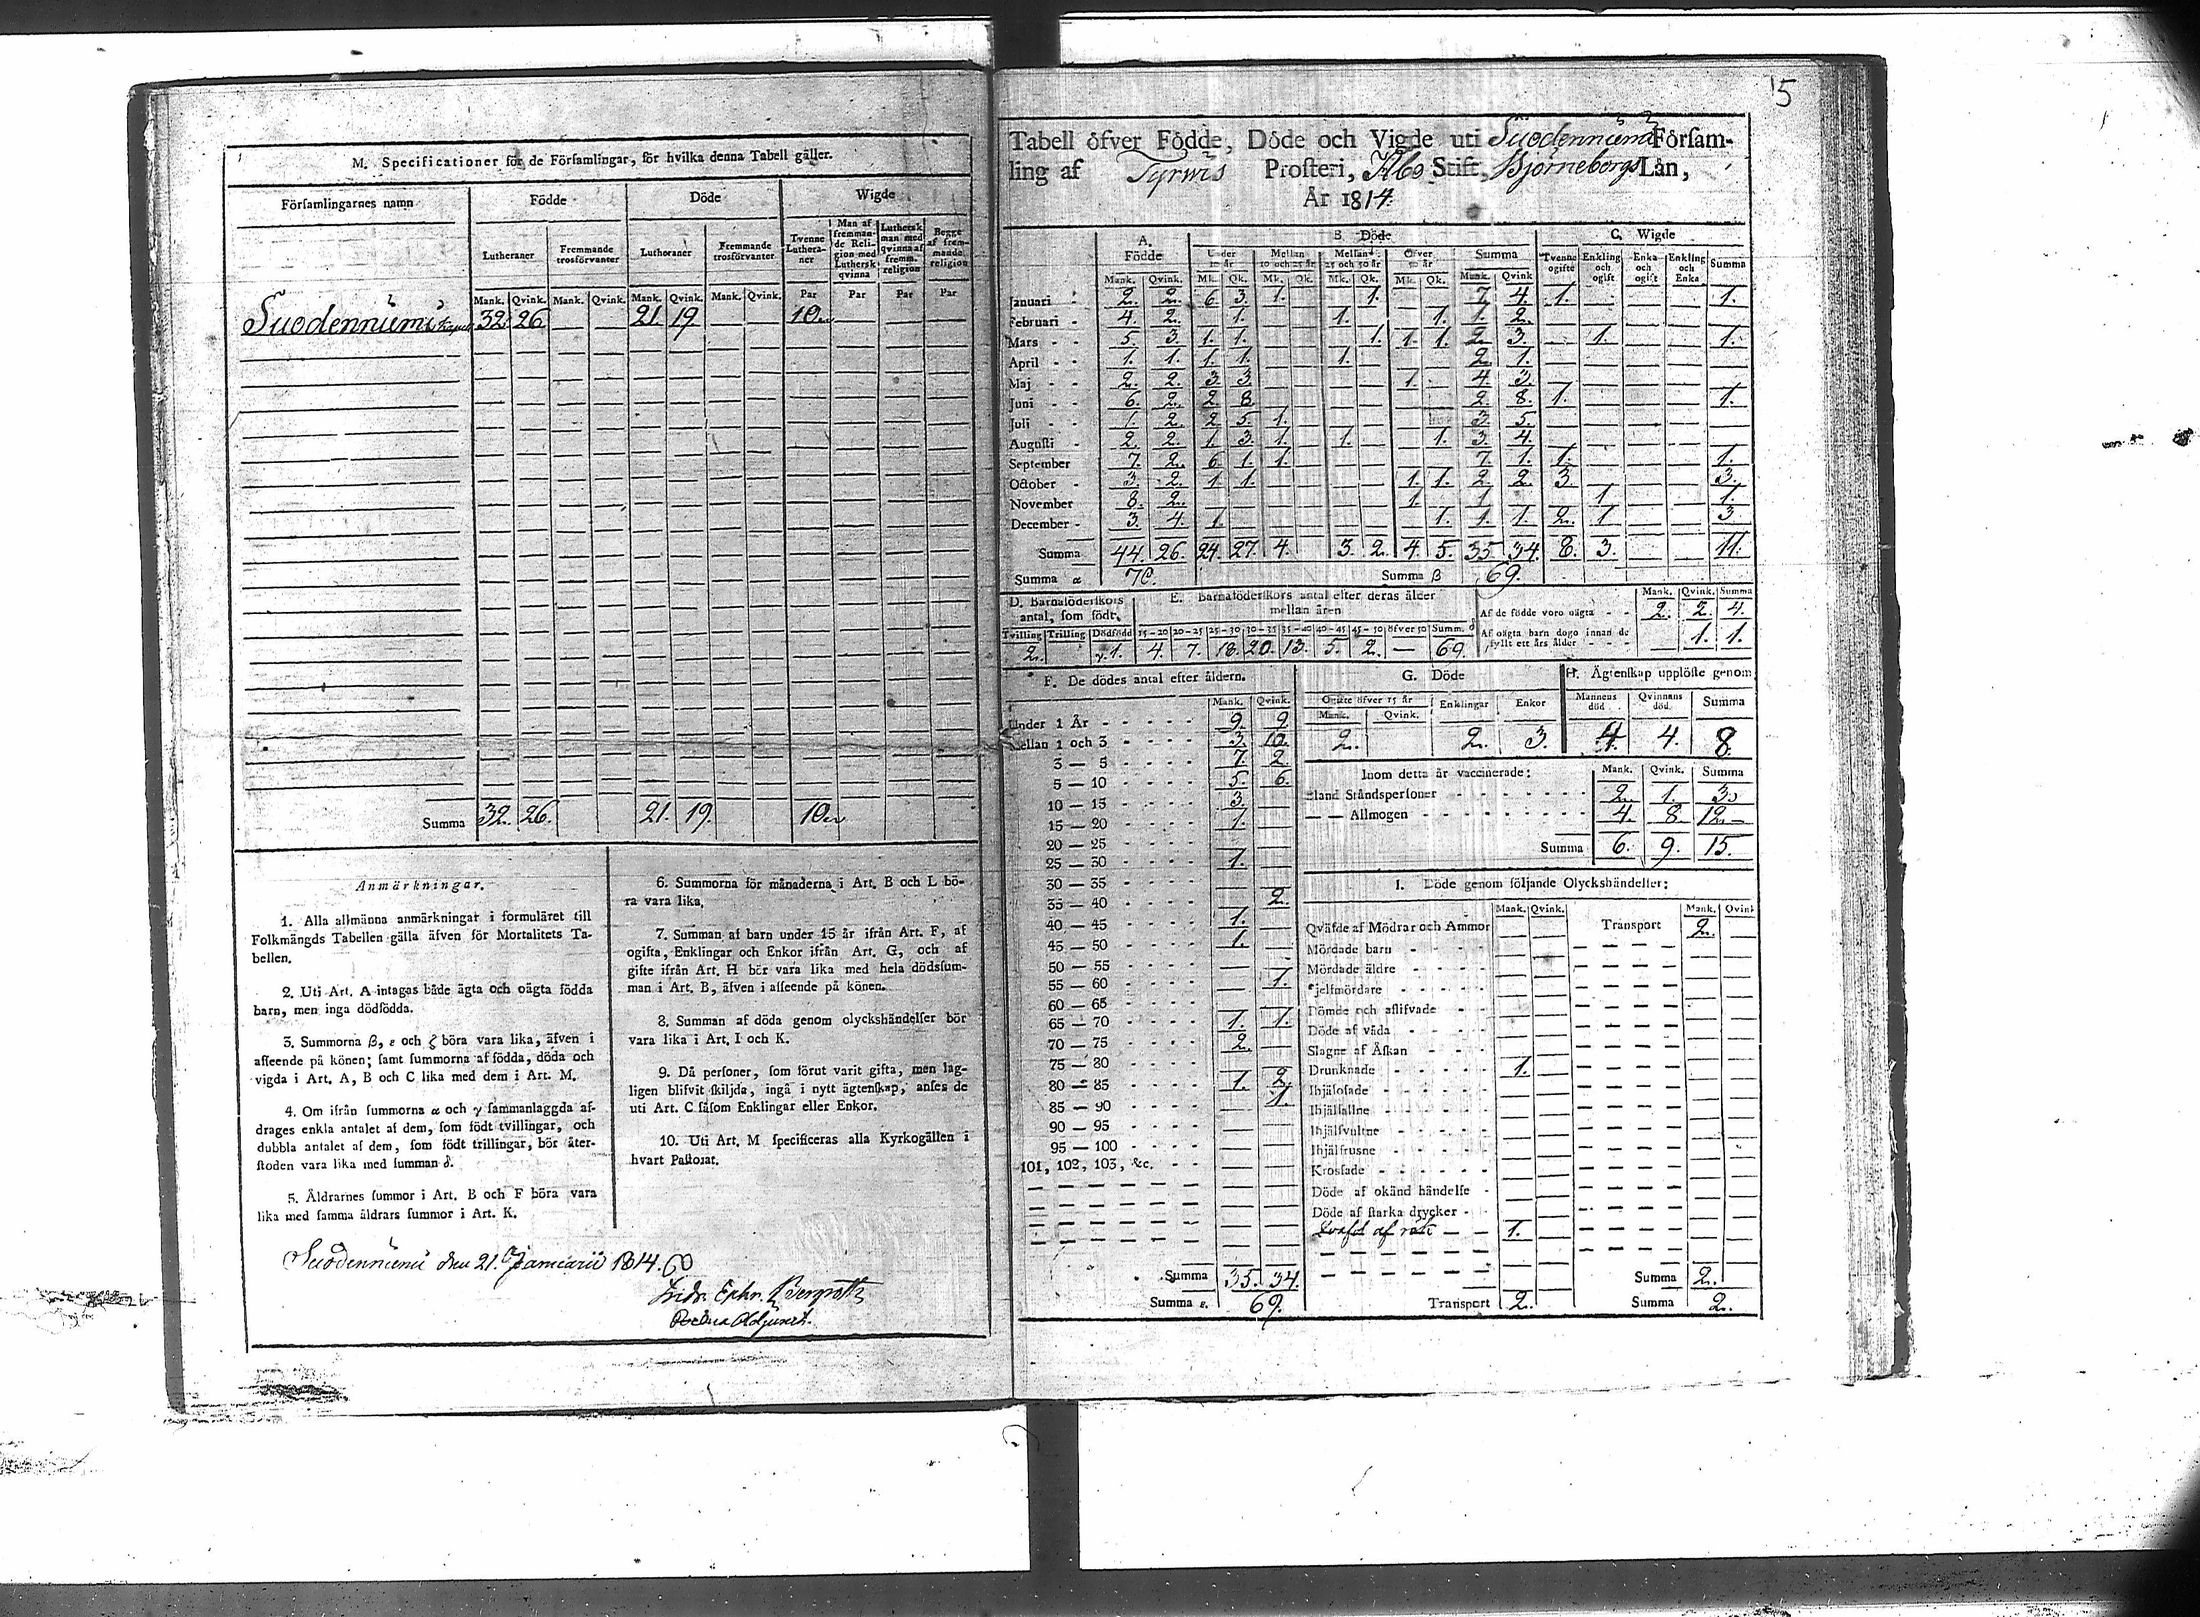 M. Specificationer för de Församlingar, för hvilka denna Tabell gäller.
Församlingarnes namn Födde Döde Wigde
Lutheraner Fremmande trosförvanter Lutheraner Fremmande trosförvanter Tvenne Lutheraner Man af fremmande Religion med Luthersk qvinna Luthersk man med qvinna af fremm. religion Begge af fremmande religion
Mank. Qvink. Mank. Qvink. Mank. Qvink. Mank. Qvink. Par Par Par Par
Suodenniemi 32. 26. 21. 19. 10
Summa 32. 26. 21. 19. 10
Anmärkningar.
1. Alla allmänna anmärkningar i formuläret till
Folkmängds Tabellen gälla äfven för Mortalitets Ta-
bellen.
2. Uti Art. A intagas både ägta och oägta födda
barn, men inga dödfödda.
3. Summorna β, ε och ζ böra vara lika, äfven i
afseende på könen; samt summorna af födda, döda och
vigda i Art. A, B och C lika med dem i Art. M.
4. Om ifrån summorna α och γ sammanlaggda af-
drages enkla antalet af dem, som födt tvillingar, och
dubbla antalet af dem, som födt trillingar, bör åter-
stoden vara lika med summan δ.
5. Åldrarnes summor i Art. B och F böra vara
lika med samma åldrars summor i Art. K.
6. Summorna för månaderna i Art. B och L bö-
ra vara lika.
7. Summan af barn under 15 år ifrån Art. F, af
ogifta, Enklingar och Enkor ifrån Art. G, och af
gifte ifrån Art. H bör vara lika med hela dödssum-
man i Art. B, äfven i afseende på könen.
8. Summan af döda genom olyckshändelser bör
vara lika i Art. I och K.
9. Då personer, som förut varit gifta, men lag-
ligen blifvit skiljda, ingå i nytt ägtenskap, anses de
uti Art. C såsom Enklingar eller Enkor.
10. Uti Art. M specificeras alla Kyrkogällen i
hvart Pastorat.
Suodenniemi den 21. Januarii 1814.
5
Tabell öfver Födde, Döde och Vigde uti Suodenniemi Församling
ling af Tyrwis Prosteri, Åbo Stift, Björneborgs Län,
År 1814.
A. Födde B Döde C. Wigde
Under 10 år Mellan 10 och 25 år Mellan 25 och 50 år Öfver 50 år Summa Tvenne ogifte Enkling och ogift Enka och ogift Enkling och Enka Summa
Mank. Qvink. Mk. Qk. Mk. Qk. Mk. Qk. Mk. Qk. Mank. Qvink
Januari 2. 2. 6. 3. 1. 1. 7. 4. 1. 1.
Februari 4. 2. 1. 1. 1. 1. 2.
Mars 5. 3. 1. 1. 1. 1. 1. 2. 3. 1. 1.
April 1. 1. 1. 1. 1. 2. 1.
Maj 2. 2. 3. 3. 1. 4. 3.
Juni 6. 2. 2. 8. 2. 8. 1. 1.
Juli 1. 2. 2. 5. 1. 3. 5.
Augusti 2. 2. 1. 3. 1. 1. 1. 3. 4.
September 7. 2. 6. 1. 1. 7. 1. 1. 1.
October 3. 2. 1. 1. 1. 1. 2. 2. 3. 3.
November 8. 2. 1. 1. 1 1.
December 3. 4. 1. 1. 1. 1. 2. 1 3
Summa 44. 26. 24. 27. 4. 3. 2. 4. 5. 35. 34. 8. 3. 11.
Summa α 70. Summa β 69.
D. Barnaföderskors antal, som födt. E. Barnaföderskors antal efter deras ålder mellan åren
Tvilling Trilling Dödfödd 15-20 20-25 25-30 30-35 35-40 40-45 45-50 öfver 50 Summ. δ
2. γ.1. 4. 7. 18. 20. 13. 5. 2. — 69.
Mank. Qvink. Summa
Af de födde voro oägta 2. 2. 4.
Af oägta barn dogo innan de fyllt ett års ålder 1. 1.
F. De dödes antal efter åldern.
Mank. Qvink.
Under 1 År 9. 9
Mellan 1 och 3 3. 10.
3 — 5 7. 2
5 — 10 5. 6.
10 — 15 3.
15 — 20 1.
20 — 25
25 — 30 1.
30 — 35
35 — 40 2.
40 — 45 1.
45 — 50 1.
50 — 55
55 — 60 1.
60 — 65
65 — 70 1. 1.
70 — 75 2.
75 — 80
80 — 85 1. 2.
85 — 90 1.
90 — 95
95 — 100
101, 102, 103, &c.
Summa 35. 34.
Summa ε. 69.
G. Döde
Ogifte öfver 15 år Enklingar Enkor
Mank. Qvink.
2. 2. 3.
H. Ägtenskap upplöste genom
Mannens död Qvinnans död. Summa
4. 4. 8.
Inom detta år vaccinerade: Mank. Qvink. Summa
Bland Ståndspersoner 2. 1. 3
— — Allmogen 4. 8. 12.
Summa 6. 9. 15.
I. Döde genom följande Olyckshändelser:
Mank. Qvink. Mank. Qvink
Qväfde af Mödrar och Ammor Transport 2.
Mördade barn
Mördade äldre
Sjelfmördare
Dömde och aflifvade
Döde af våda
Slagne af Åskan
Drunknade 1.
Ihjälsofade
Ihjälfallne
Ihjälsvultne
Ihjälfrusne
Krossade
Döde af okänd händelse
Döde af starka drycker
af 1.
Summa 2.
Transport 2. Summa 2.